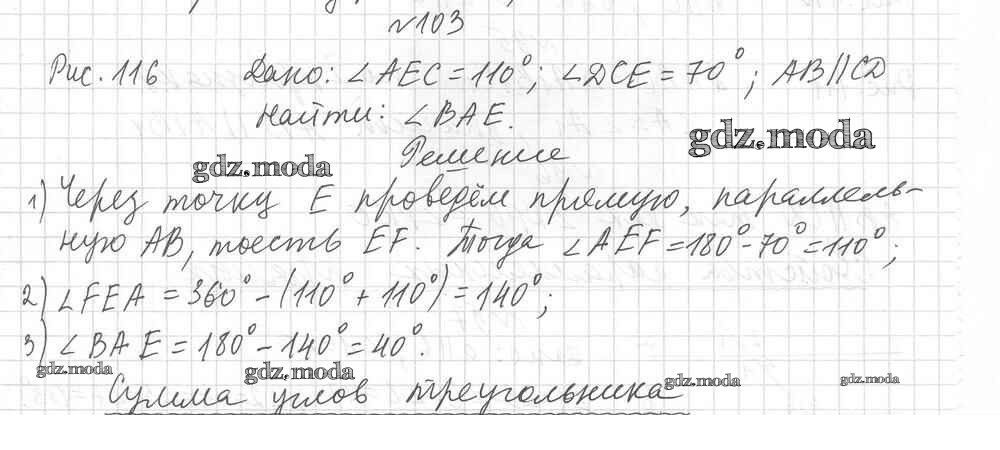 №103
Рис. 116 Дано: ∠AEC = 110°; ∠DCE = 70°; AB//CD
Найти: ∠BAE.
gdz.moda
Решение
gdz.moda
1) Через точку E проведём прямую, параллель-
ную AB, тоесть EF. Тогда ∠AEF = 180° - 70° = 110°;
2) ∠FEA = 360° - (110° + 110°) = 140°;
3) ∠BAE = 180° - 140° = 40°.
gdz.moda gdz.moda gdz.moda gdz.moda
Сумма углов треугольника